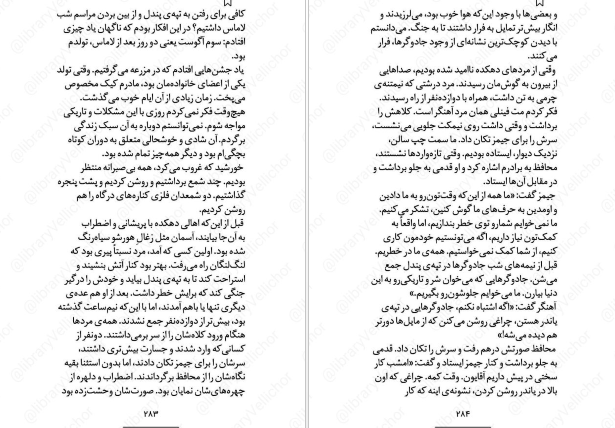 کافی برای رفتن به تپه‌ی پندل و از بین بردن مراسم شب
لاماس داشتیم؟ در این افکار بودم که ناگهان یاد چیزی
افتادم: سوم آگوست یعنی دو روز بعد از لاماس، تولدم
بود.
یاد جشن‌هایی افتادم که در مزرعه می‌گرفتیم. وقتی تولد
یکی از اعضای خانواده‌مان بود، مادرم کیک مخصوص
می‌پخت. زمان زیادی از آن ایام خوب می‌گذشت.
هیچ‌وقت فکر نمی‌کردم روزی با این مشکلات و تاریکی
مواجه شوم. نمی‌توانستم دوباره به آن سبک زندگی
برگردم. آن شادی و خوشحالی متعلق به دوران کوتاه
بچگی‌ام بود و دیگر همه‌چیز تمام شده بود.
خورشید که غروب می‌کرد، همه بی‌صبرانه منتظر
بودیم. چند شمع برداشتیم و روشن کردیم و پشت پنجره
گذاشتیم. دو شمعدان فلزی کناره‌های درگاه را هم
روشن کردیم.
قبل از این‌که اهالی دهکده با پریشانی و اضطراب
به آن‌جا بیایند، آسمان مثل زغالِ هورشو سیاه‌رنگ
شده بود. اولین کسی که آمد، مرد نسبتاً پیری بود که
لنگ‌لنگان راه می‌رفت. بهتر بود کنار آتش بنشیند و
استراحت کند تا به تپه‌ی پندل بیاید و خودش را درگیر
جنگی کند که برایش خطر داشت. بعد از او هم عده‌ی
دیگری تنها یا باهم آمدند، اما با این‌که نیم‌ساعت گذشته
بود، بیش‌تر از دوازده‌نفر جمع نشدند. همه‌ی مردها
هنگام ورود کلاه‌شان را از سر برمی‌داشتند. دونفر از
کسانی‌که وارد شدند و جسارت بیش‌تری داشتند،
سرشان را برای جیمز تکان دادند، اما بدون استثنا بقیه
نگاه‌شان را از محافظ برگرداندند. اضطراب و دلهره از
چهره‌های‌شان نمایان بود. صورت‌شان وحشت‌زده بود
۲۸۳
و بعضی‌ها با وجود این‌که هوا خوب بود، می‌لرزیدند و
انگار بیش‌تر تمایل به فرار داشتند تا به جنگ. می‌دانستم
با دیدن کوچک‌ترین نشانه‌ای از وجود جادوگرها، فرار
می‌کنند.
وقتی از مردهای دهکده ناامید شده بودیم، صداهایی
از بیرون به گوش‌مان رسیدند. مرد درشتی که نیمتنه‌ی
چرمی به تن داشت، همراه با دوازده‌نفر از راه رسیدند.
فکر کردم مت فینلی همان مرد آهنگر است. کلاهش را
برداشت و وقتی داشت روی نیمکت جلویی می‌نشست،
سرش را برای جیمز تکان داد. ما سمت چپ سالن،
نزدیک دیوار، ایستاده بودیم. وقتی تازه‌واردها نشستند،
محافظ به برادرم اشاره کرد و او قدمی به جلو برداشت و
در مقابل آن‌ها ایستاد.
جیمز گفت: «ما همه از این که وقت‌تون‌رو به ما دادین
و اومدین به حرف‌های ما گوش کنین، تشکر می‌کنیم.
ما نمی‌خوایم شمارو توی خطر بندازیم، اما واقعاً به
کمک‌تون نیاز داریم، اگه می‌تونستیم خودمون کاری
کنیم، از شما کمک نمی‌خواستیم. همه‌ی ما در خطریم.
قبل از نیمه‌های شب جادوگرها در تپه‌ی پندل جمع
می‌شن، جادوگرهایی که می‌خوان شر و تاریکی‌رو به این
دنیا بیارن. ما می‌خوایم جلوشون‌رو بگیریم.»
آهنگر گفت: «اگه اشتباه نکنم، جادوگرهایی در تپه‌ی
پاندر هستن، چراغی روشن می‌کنن که از مایل‌ها دورتر
هم دیده می‌شه!»
محافظ صورتش درهم رفت و سرش را تکان داد. قدمی
به جلو برداشت و کنار جیمز ایستاد و گفت: «امشب کار
سختی در پیش داریم آقایون. وقت کمه. چراغی که اون
بالا در پاندر روشن کردن، نشونه‌ی اینه که کار
۲۸۴